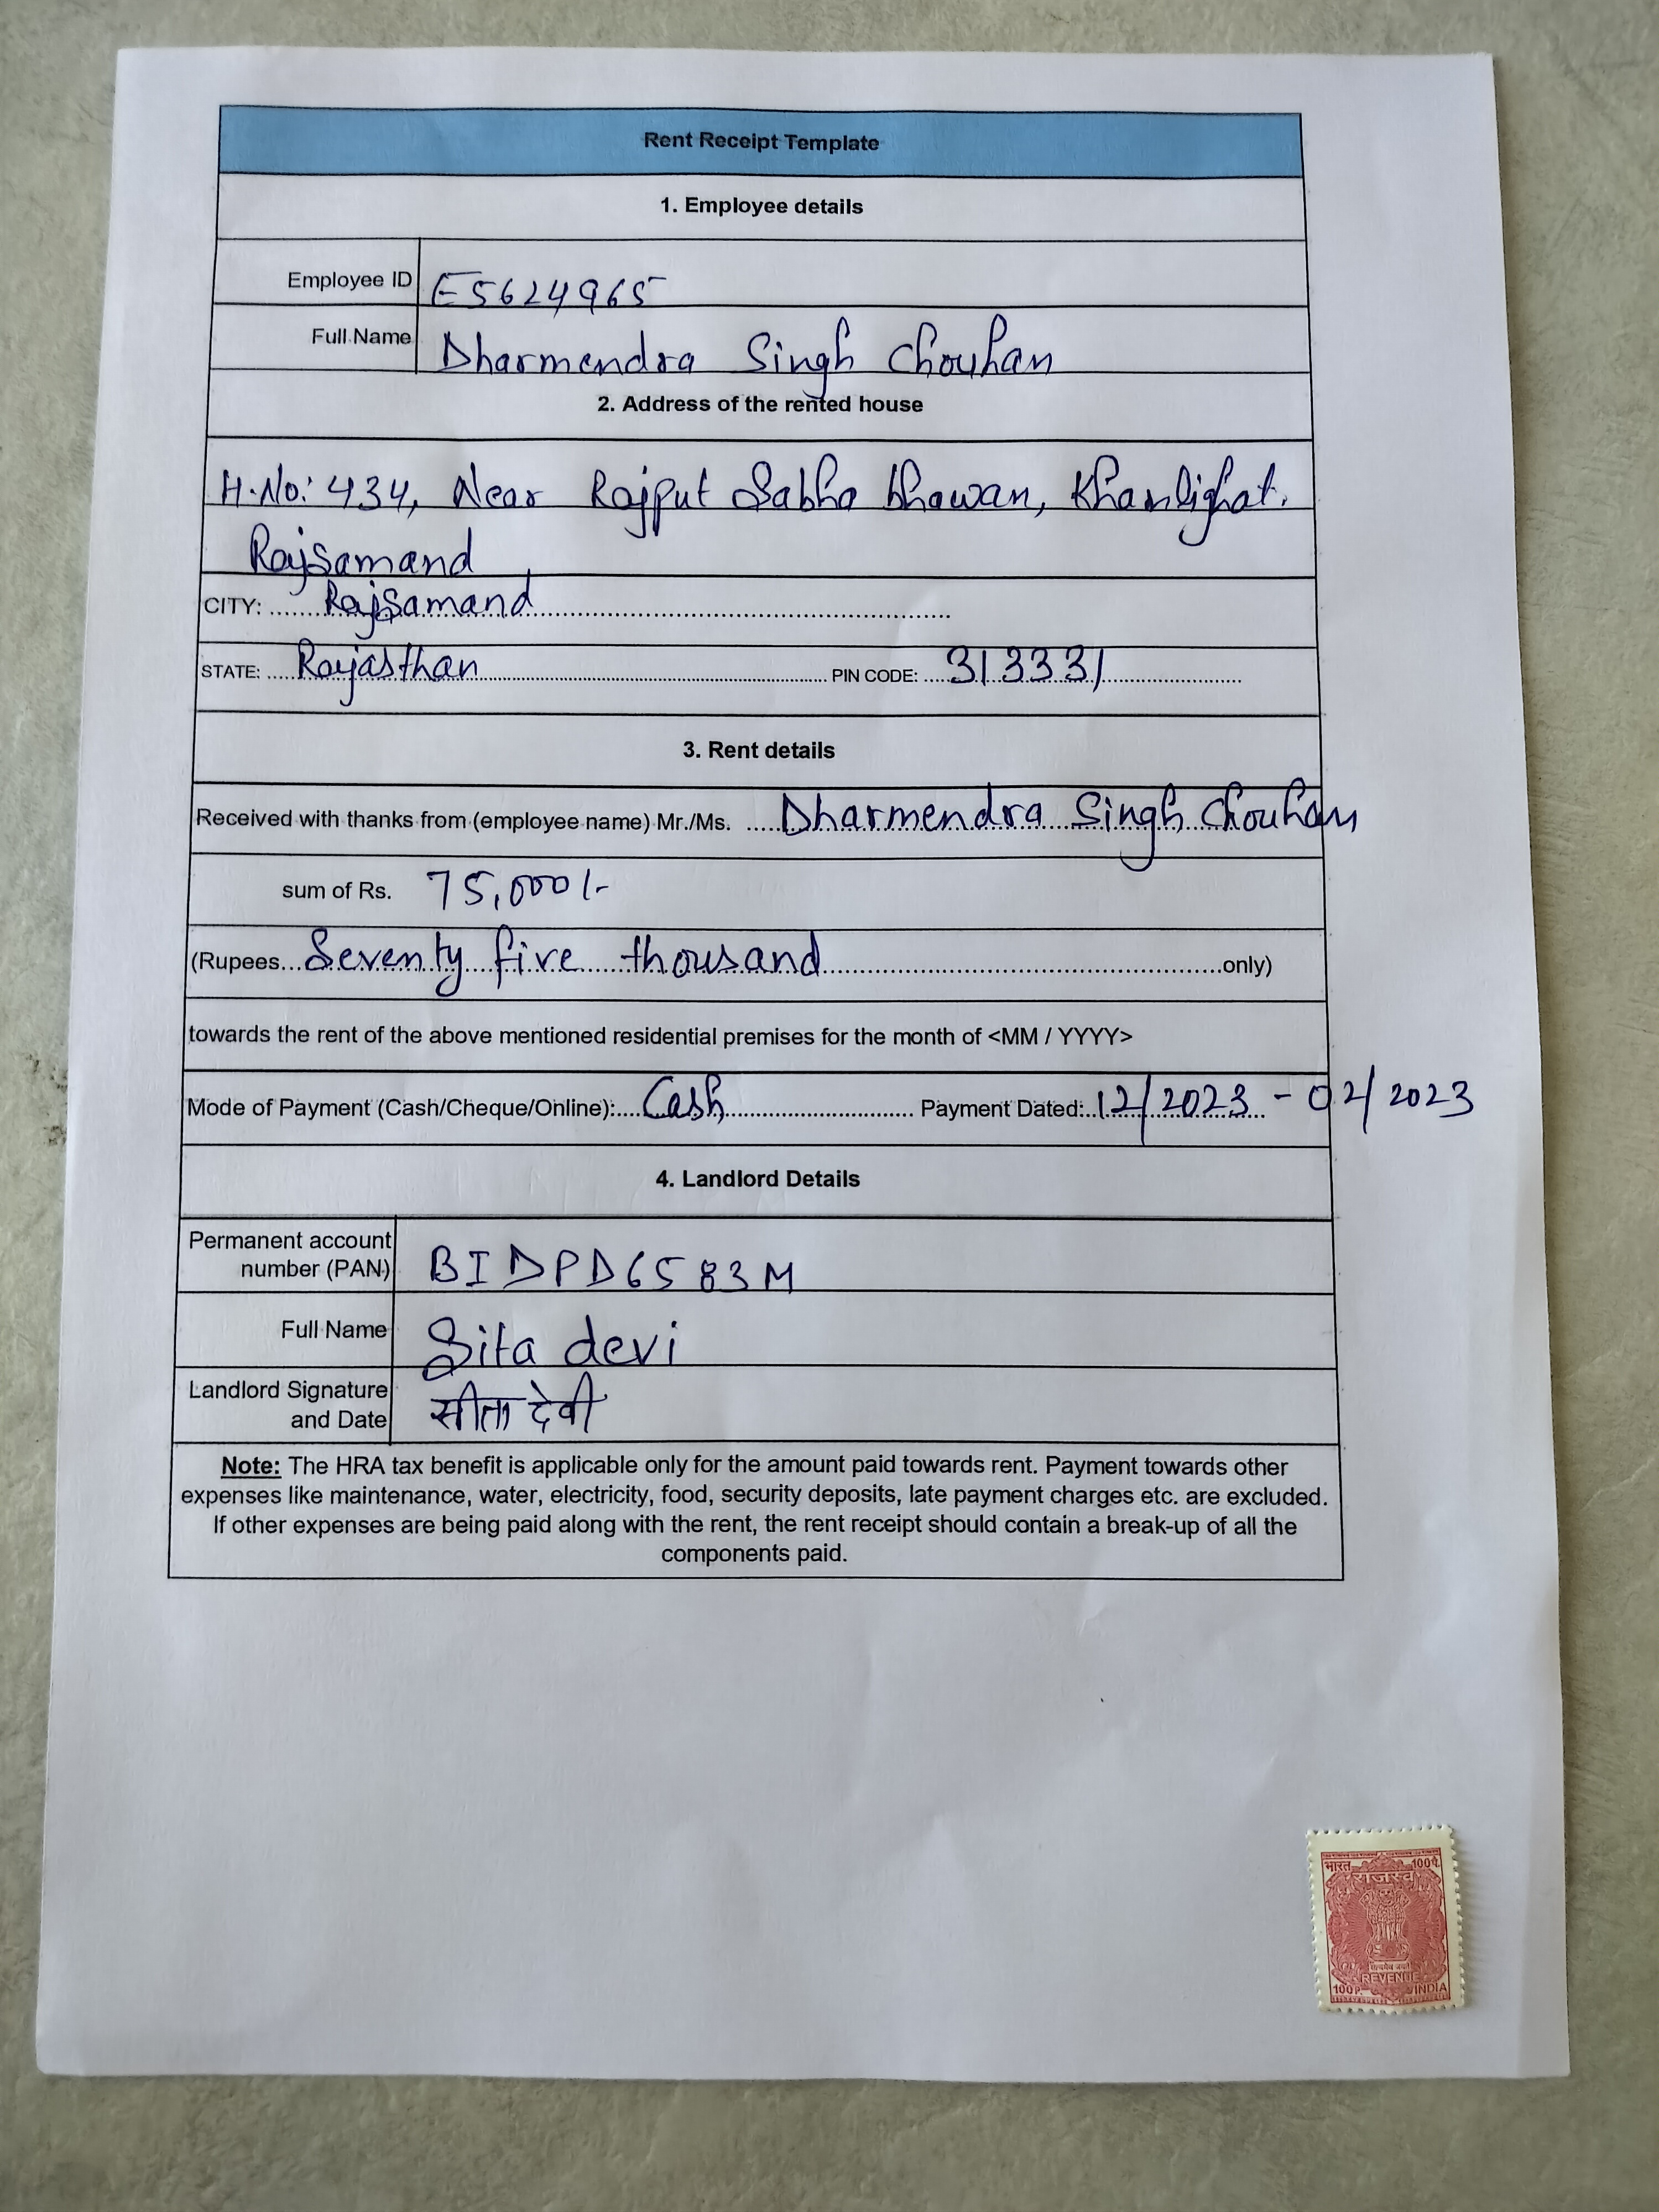 Rent Receipt Template
1. Employee details
Employee ID E5624965
Full Name Dharmendra Singh Chouhan
2. Address of the rented house
H.No: 434, Near Rajput Sabha bhawan, Khamlighat.
Rajsamand
CITY: ....... Rajsamand ..........
STATE: ..... Rajasthan .......... PIN CODE: .... 313331 ..........
3. Rent details
Received with thanks from (employee name) Mr./Ms. ..... Dharmendra Singh Chouhan
sum of Rs. 75,000/-
(Rupees... Seventy five thousand ..........only)
towards the rent of the above mentioned residential premises for the month of <MM / YYYY>
Mode of Payment (Cash/Cheque/Online):.... Cash .......... Payment Dated:.. 12/2023 - 02/2023
4. Landlord Details
Permanent account
number (PAN) BIDPD6583M
Full Name Sita devi
Landlord Signature
and Date सीता देवी
Note: The HRA tax benefit is applicable only for the amount paid towards rent. Payment towards other
expenses like maintenance, water, electricity, food, security deposits, late payment charges etc. are excluded.
If other expenses are being paid along with the rent, the rent receipt should contain a break-up of all the
components paid.
भारत 100पै.
राजस्व
सत्यमेव जयते
REVENUE
100P. INDIA